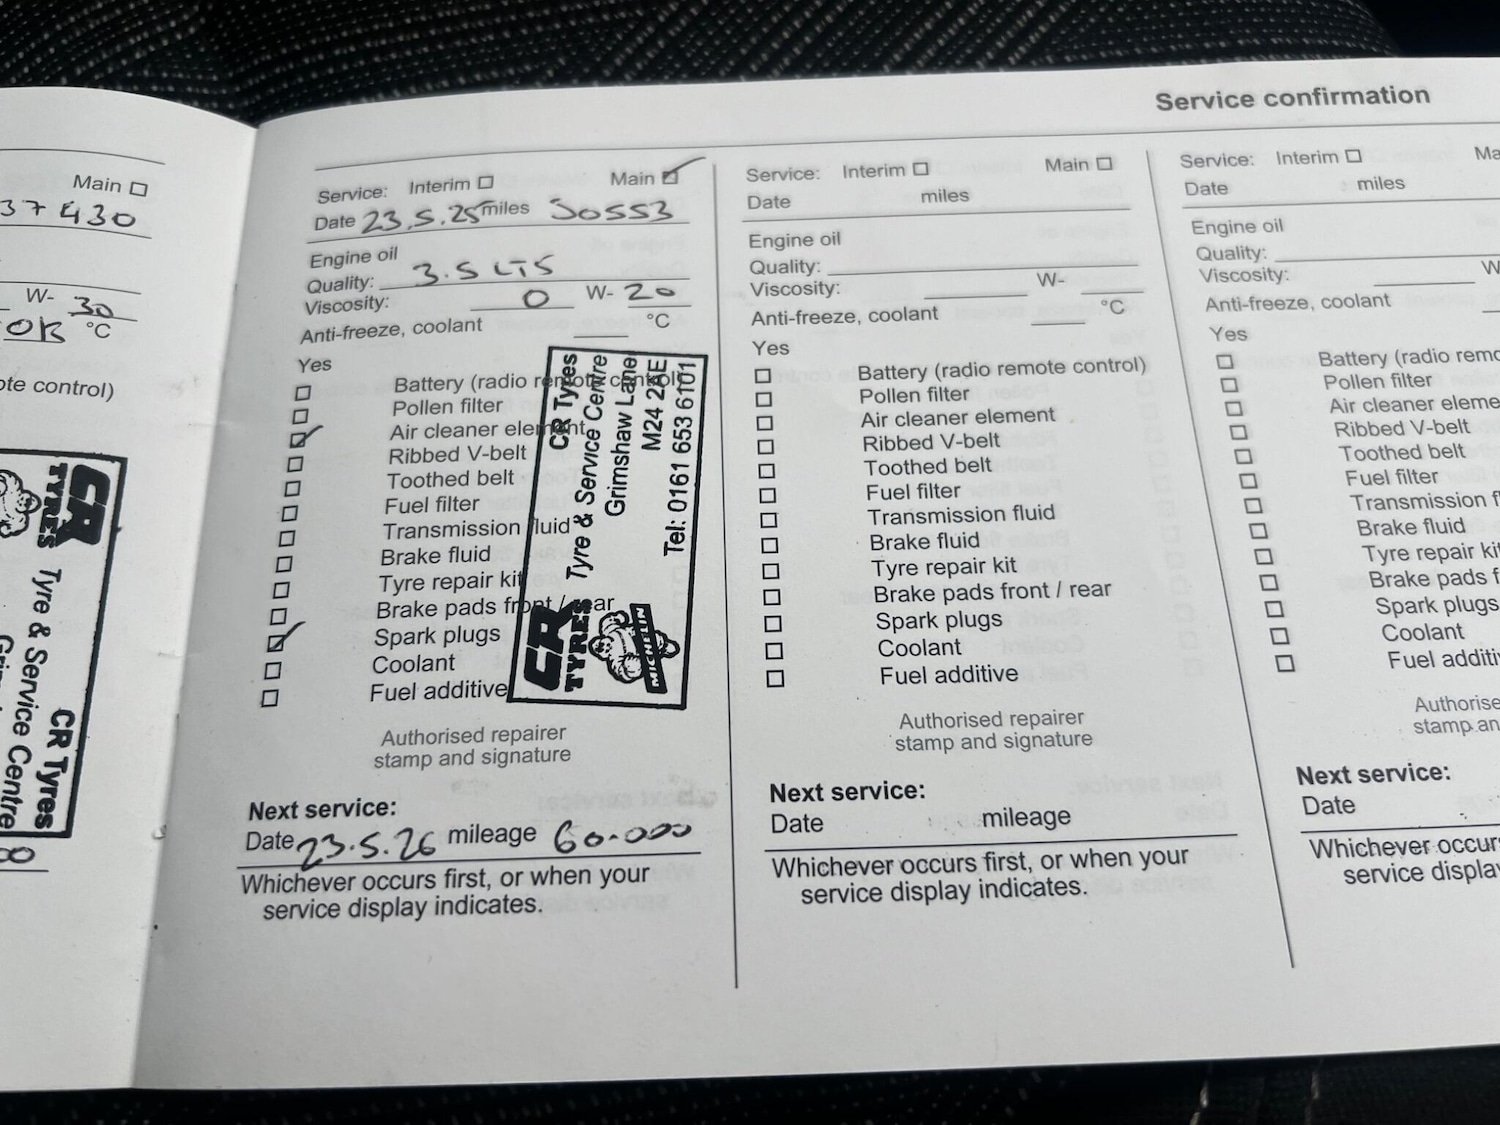 Service confirmation
Main
37430
W- 30
OK °C
ote control)
CR
TYRES
CR Tyres
Tyre & Service Centre
Service: Interim Main
Date 23.5.25 miles 50553
Engine oil
Quality: 3.5 LTS
Viscosity: 0 W- 20
Anti-freeze, coolant °C
Yes
Battery (radio remote control)
Pollen filter
Air cleaner element
Ribbed V-belt
Toothed belt
Fuel filter
Transmission fluid
Brake fluid
Tyre repair kit
Brake pads front / rear
Spark plugs
Coolant
Fuel additive
CR Tyres
Tyre & Service Centre
Grimshaw Lane
M24 2AE
Tel: 0161 653 6101
CR
TYRES
MICHELIN
Authorised repairer
stamp and signature
Next service:
Date 23.5.26 mileage 60.000
Whichever occurs first, or when your
service display indicates.
Service: Interim Main
Date miles
Engine oil
Quality:
Viscosity: W-
Anti-freeze, coolant °C
Yes
Battery (radio remote control)
Pollen filter
Air cleaner element
Ribbed V-belt
Toothed belt
Fuel filter
Transmission fluid
Brake fluid
Tyre repair kit
Brake pads front / rear
Spark plugs
Coolant
Fuel additive
Authorised repairer
stamp and signature
Next service:
Date mileage
Whichever occurs first, or when your
service display indicates.
Service: Interim Ma
Date miles
Engine oil
Quality:
Viscosity: W
Anti-freeze, coolant
Yes
Battery (radio remo
Pollen filter
Air cleaner eleme
Ribbed V-belt
Toothed belt
Fuel filter
Transmission f
Brake fluid
Tyre repair kit
Brake pads f
Spark plugs
Coolant
Fuel additi
Authorise
stamp an
Next service:
Date
Whichever occur
service displa